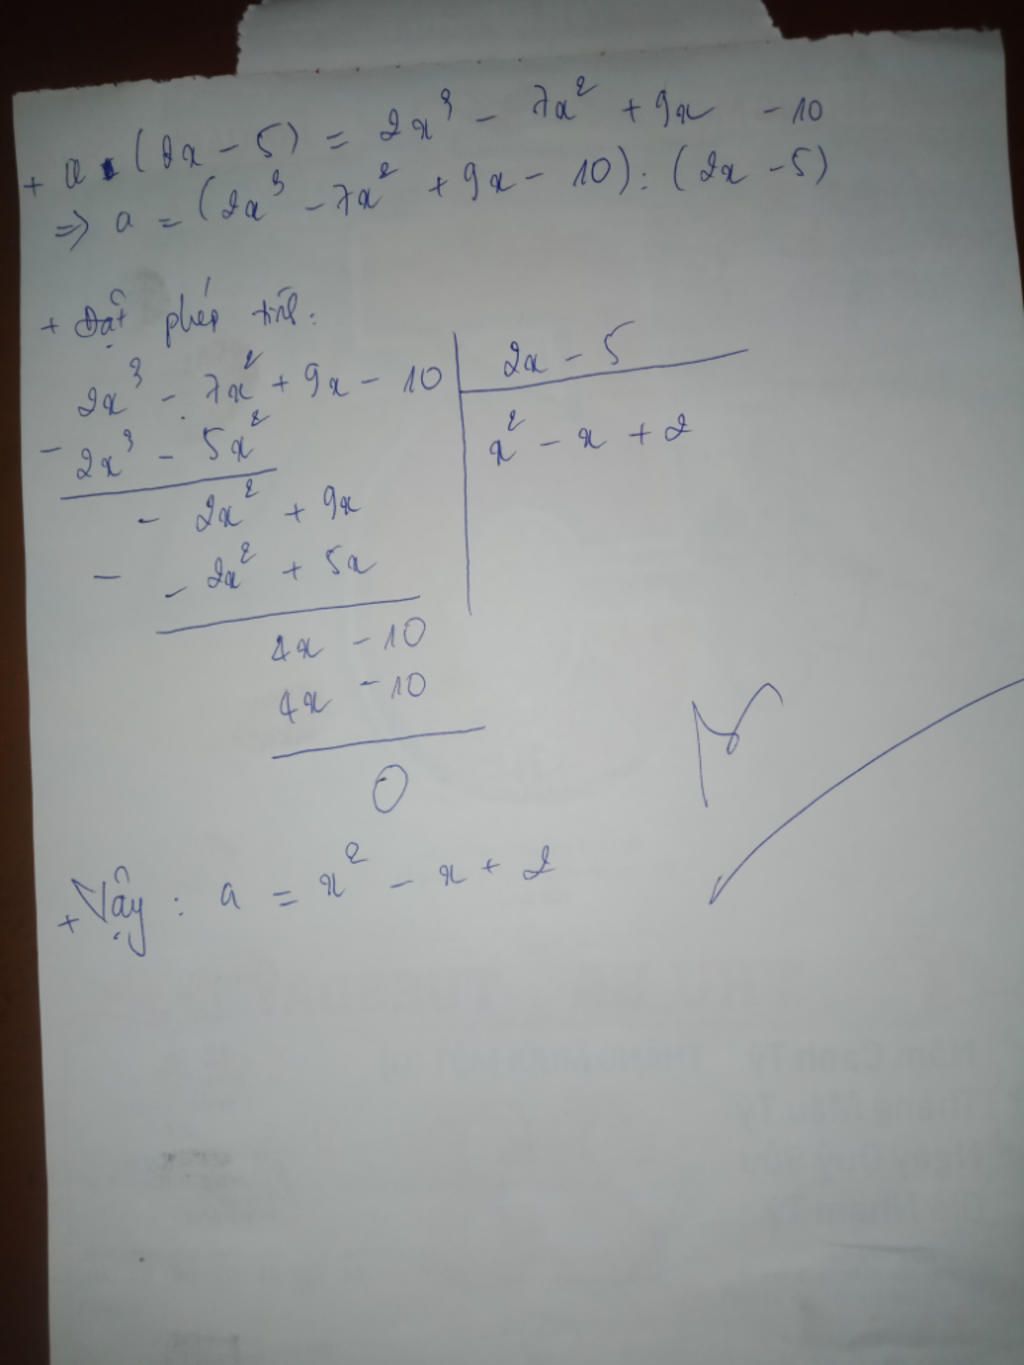 + a . (2x - 5) = 2x³ - 7x² + 9x - 10
=> a = (2x³ - 7x² + 9x - 10) : (2x - 5)
+ Đặt phép tính:
2x³ - 7x² + 9x - 10 | 2x - 5
- 2x³ - 5x² | x² - x + 2
- 2x² + 9x
- - 2x² + 5x
4x - 10
4x - 10
0
+ Vậy : a = x² - x + 2